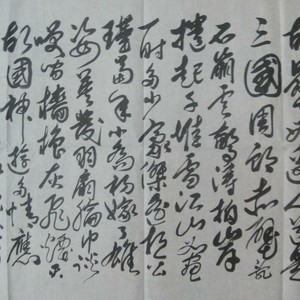 故壘西邊人道是
三國周郎赤壁亂
石崩雲驚濤拍岸
捲起千堆雪江山如畫
一時多少豪傑遙想公
瑾當年小喬初嫁了雄
姿英發羽扇綸巾談
笑間檣櫓灰飛煙
故國神遊多情應